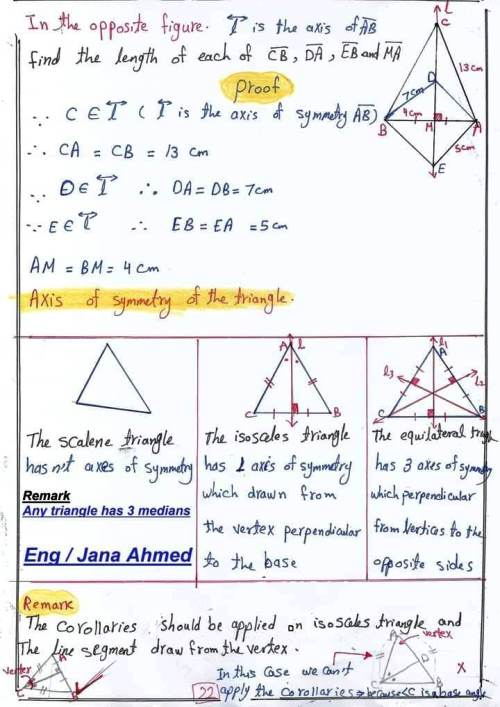 In the opposite figure. l is the axis of AB
find the length of each of CB, DA, EB and MA
proof
∵ C ∈ l ( l is the axis of symmetry AB)
∴ CA = CB = 13 cm
∵ D ∈ l ∴ DA = DB = 7cm
∵ E ∈ l ∴ EB = EA = 5 cm
AM = BM = 4 cm
l
C
13 cm
D
7cm
4cm
B
M
A
5cm
E
Axis of symmetry of the triangle.
The scalene triangle
has not axes of symmetry
Remark
Any triangle has 3 medians
Eng / Jana Ahmed
A l
C B
The isosales triangle
has 1 axis of symmetry
which drawn from
the vertex perpendicular
to the base
l1
A
l3 l2
C B
The equilateral triangle
has 3 axes of symmetry
which perpendicular
from vertices to the
opposite sides
Remark
The corollaries should be applied on isosales triangle and
The line segment draw from the vertex.
vertex
A
C
B
In this case we can't
22 apply the corollaries → because <C is a base angle
A
vertex
D
C
B
X